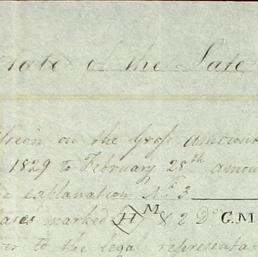 tate of the Late
on the Gross amount
1829 to February 28th amou
explanation No 3
marked H M & 2 Do C.M
to the legal representa